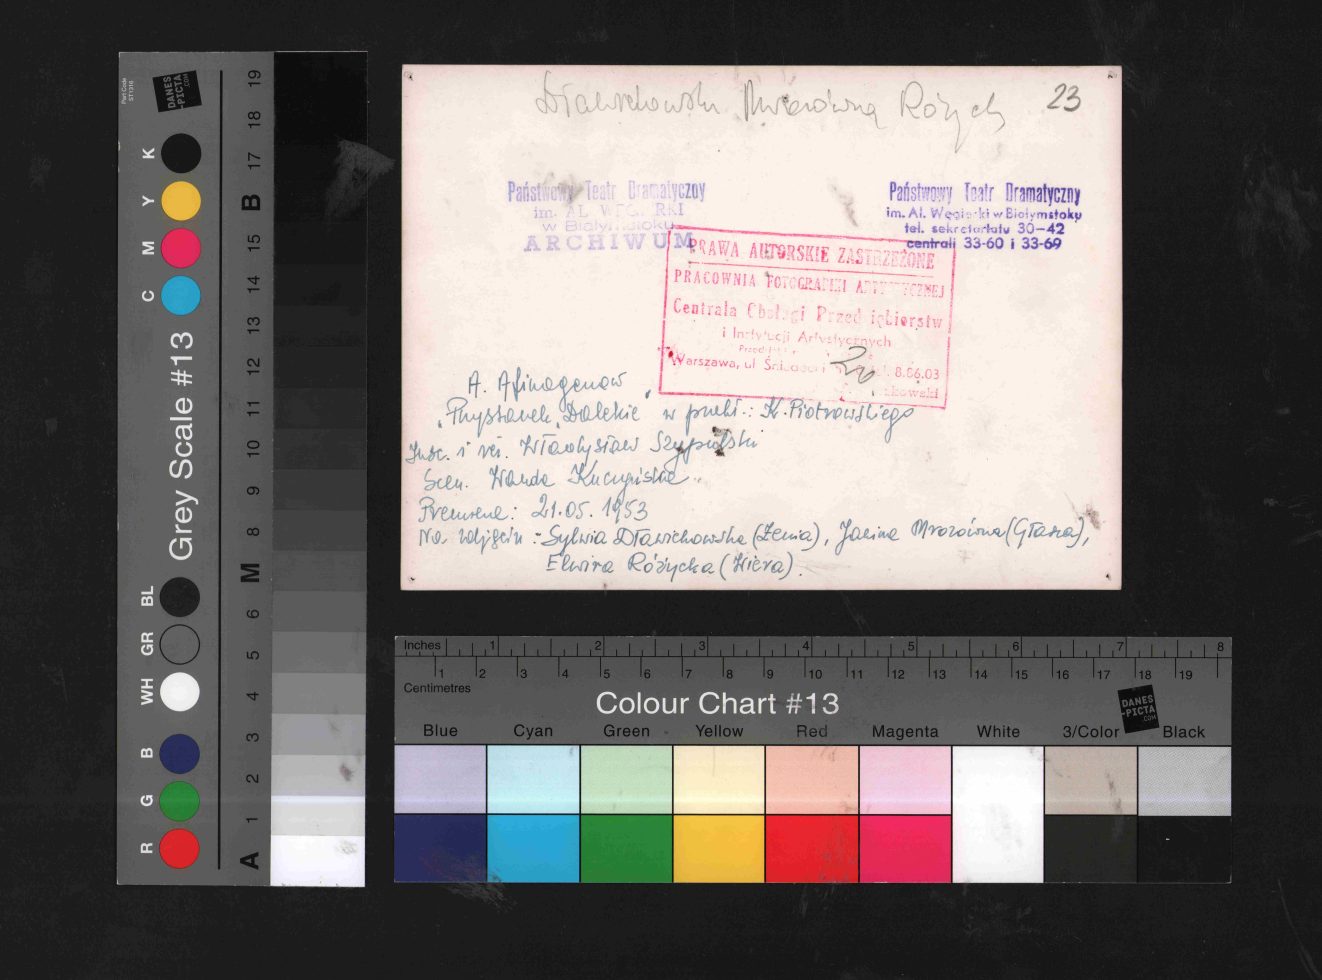 Dławichowska Mrozówna Różyck 23
Państwowy Teatr Dramatyczny
im. AL. WĘGIERKI
w Białymstoku
ARCHIWUM
Państwowy Teatr Dramatyczny
im. Al. Węgierki w Białymstoku
tel. sekretariatu 30-42
centrali 33-60 i 33-69
PRAWA AUTORSKIE ZASTRZEŻONE
PRACOWNIA FOTOGRAFIKI ARTYSTYCZNEJ
Centrala Obsługi Przedsiębiorstw
i Instytucji Artystycznych
Warszawa, ul. 8.06.03
20
A. Afinogenow
"Przystanek Dalekie" w przekł.: K. Piotrowskiego
Insc. i reż. Władysław Szypulski
Scen. Wanda
Premiera: 21.05.1953
Na zdjęciu: - Sylwia Dławichowska (Żenia), Janina Mrozówna (Głasza),
Elwira Różycka (Wiera).
Part Code
ST1316
DANES
-PICTA
.COM
Grey Scale #13
R G B WH GR BL C M Y K
A 1 2 3 4 5 6 M 8 9 10 11 12 13 14 15 B 17 18 19
Inches 1 2 3 4 5 6 7 8
1 2 3 4 5 6 7 8 9 10 11 12 13 14 15 16 17 18 19
Centimetres
Colour Chart #13
DANES
-PICTA
.COM
Blue Cyan Green Yellow Red Magenta White 3/Color Black